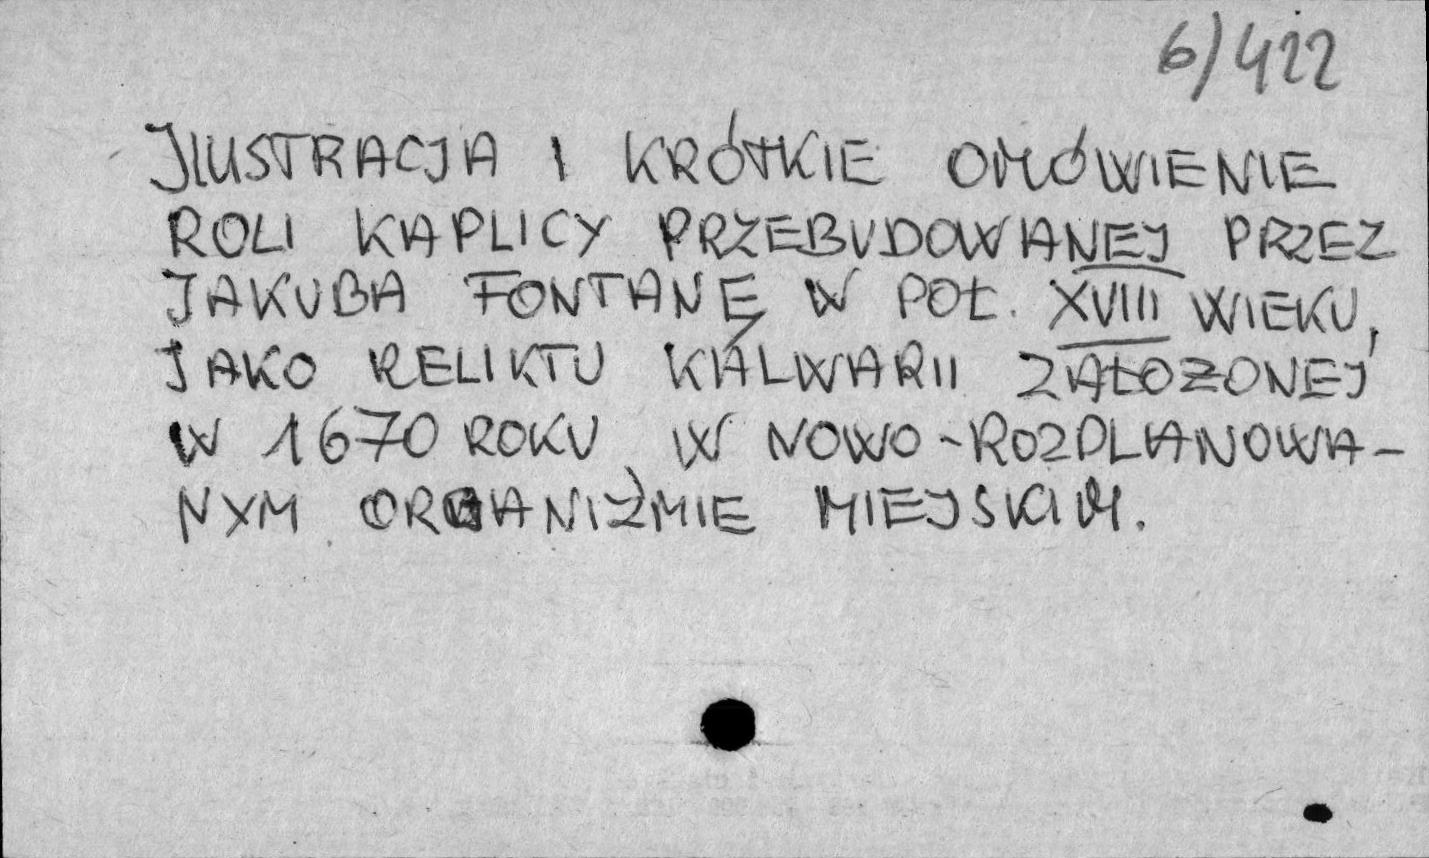 6/422
ILUSTRACJA I KRÓTKIE OMÓWIENIE
ROLI KAPLICY PRZEBUDOWANEJ PRZEZ
JAKUBA FONTANĘ W POŁ. XVIII WIEKU,
JAKO RELIKTU KALWARII ZAŁOŻONEJ
W 1670 ROKU, W NOWO-ROZPLANOWA-
NYM ORGANIZMIE MIEJSKIM.